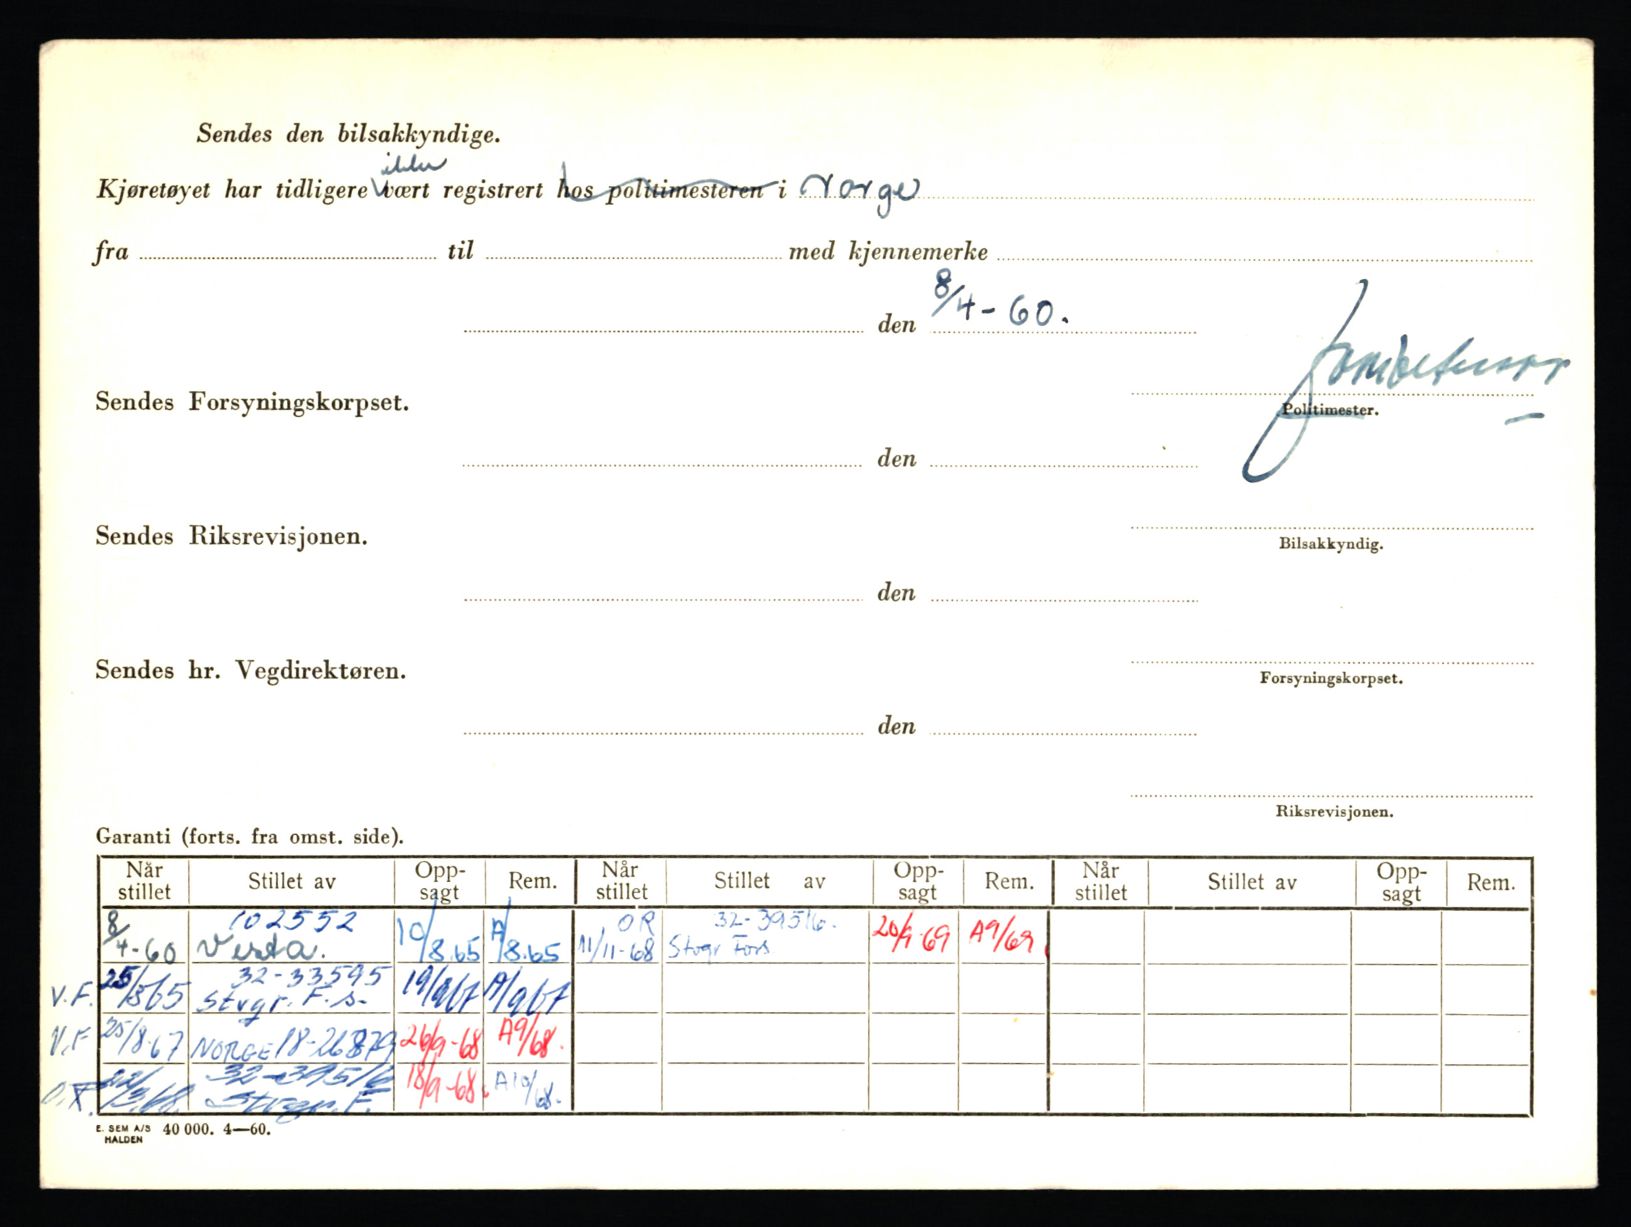 Sendes den bilsakkyndige.
ikke
Kjøretøyet har tidligere vært registrert hos politimesteren i Norge
fra til med kjennemerke
den 8/4-60.
Sendes Forsyningskorpset.
Politimester.
den
Sendes Riksrevisjonen.
Bilsakkyndig.
den
Sendes hr. Vegdirektøren.
Forsyningskorpset.
den
Riksrevisjonen.
Garanti (forts. fra omst. side).
Når stillet Stillet av Opp-sagt Rem. Når stillet Stillet av Opp-sagt Rem. Når stillet Stillet av Opp-sagt Rem.
102552 OR 32-39516.
8/4-60 Vesta. 10/8.65 A/8.65 11/11-68 Stvgr Fors 20/9-69 A9/69
32-33595
V.F. 25/865 Stvgr. F. s. 19/967 A/967
V.F 25/8.67 NORGE 18-26879 26/9-68 A9/68.
32-39516
/3.68. Stvgr. F. 18/9-68. A10/68.
E. SEM A/S HALDEN 40 000. 4—60.